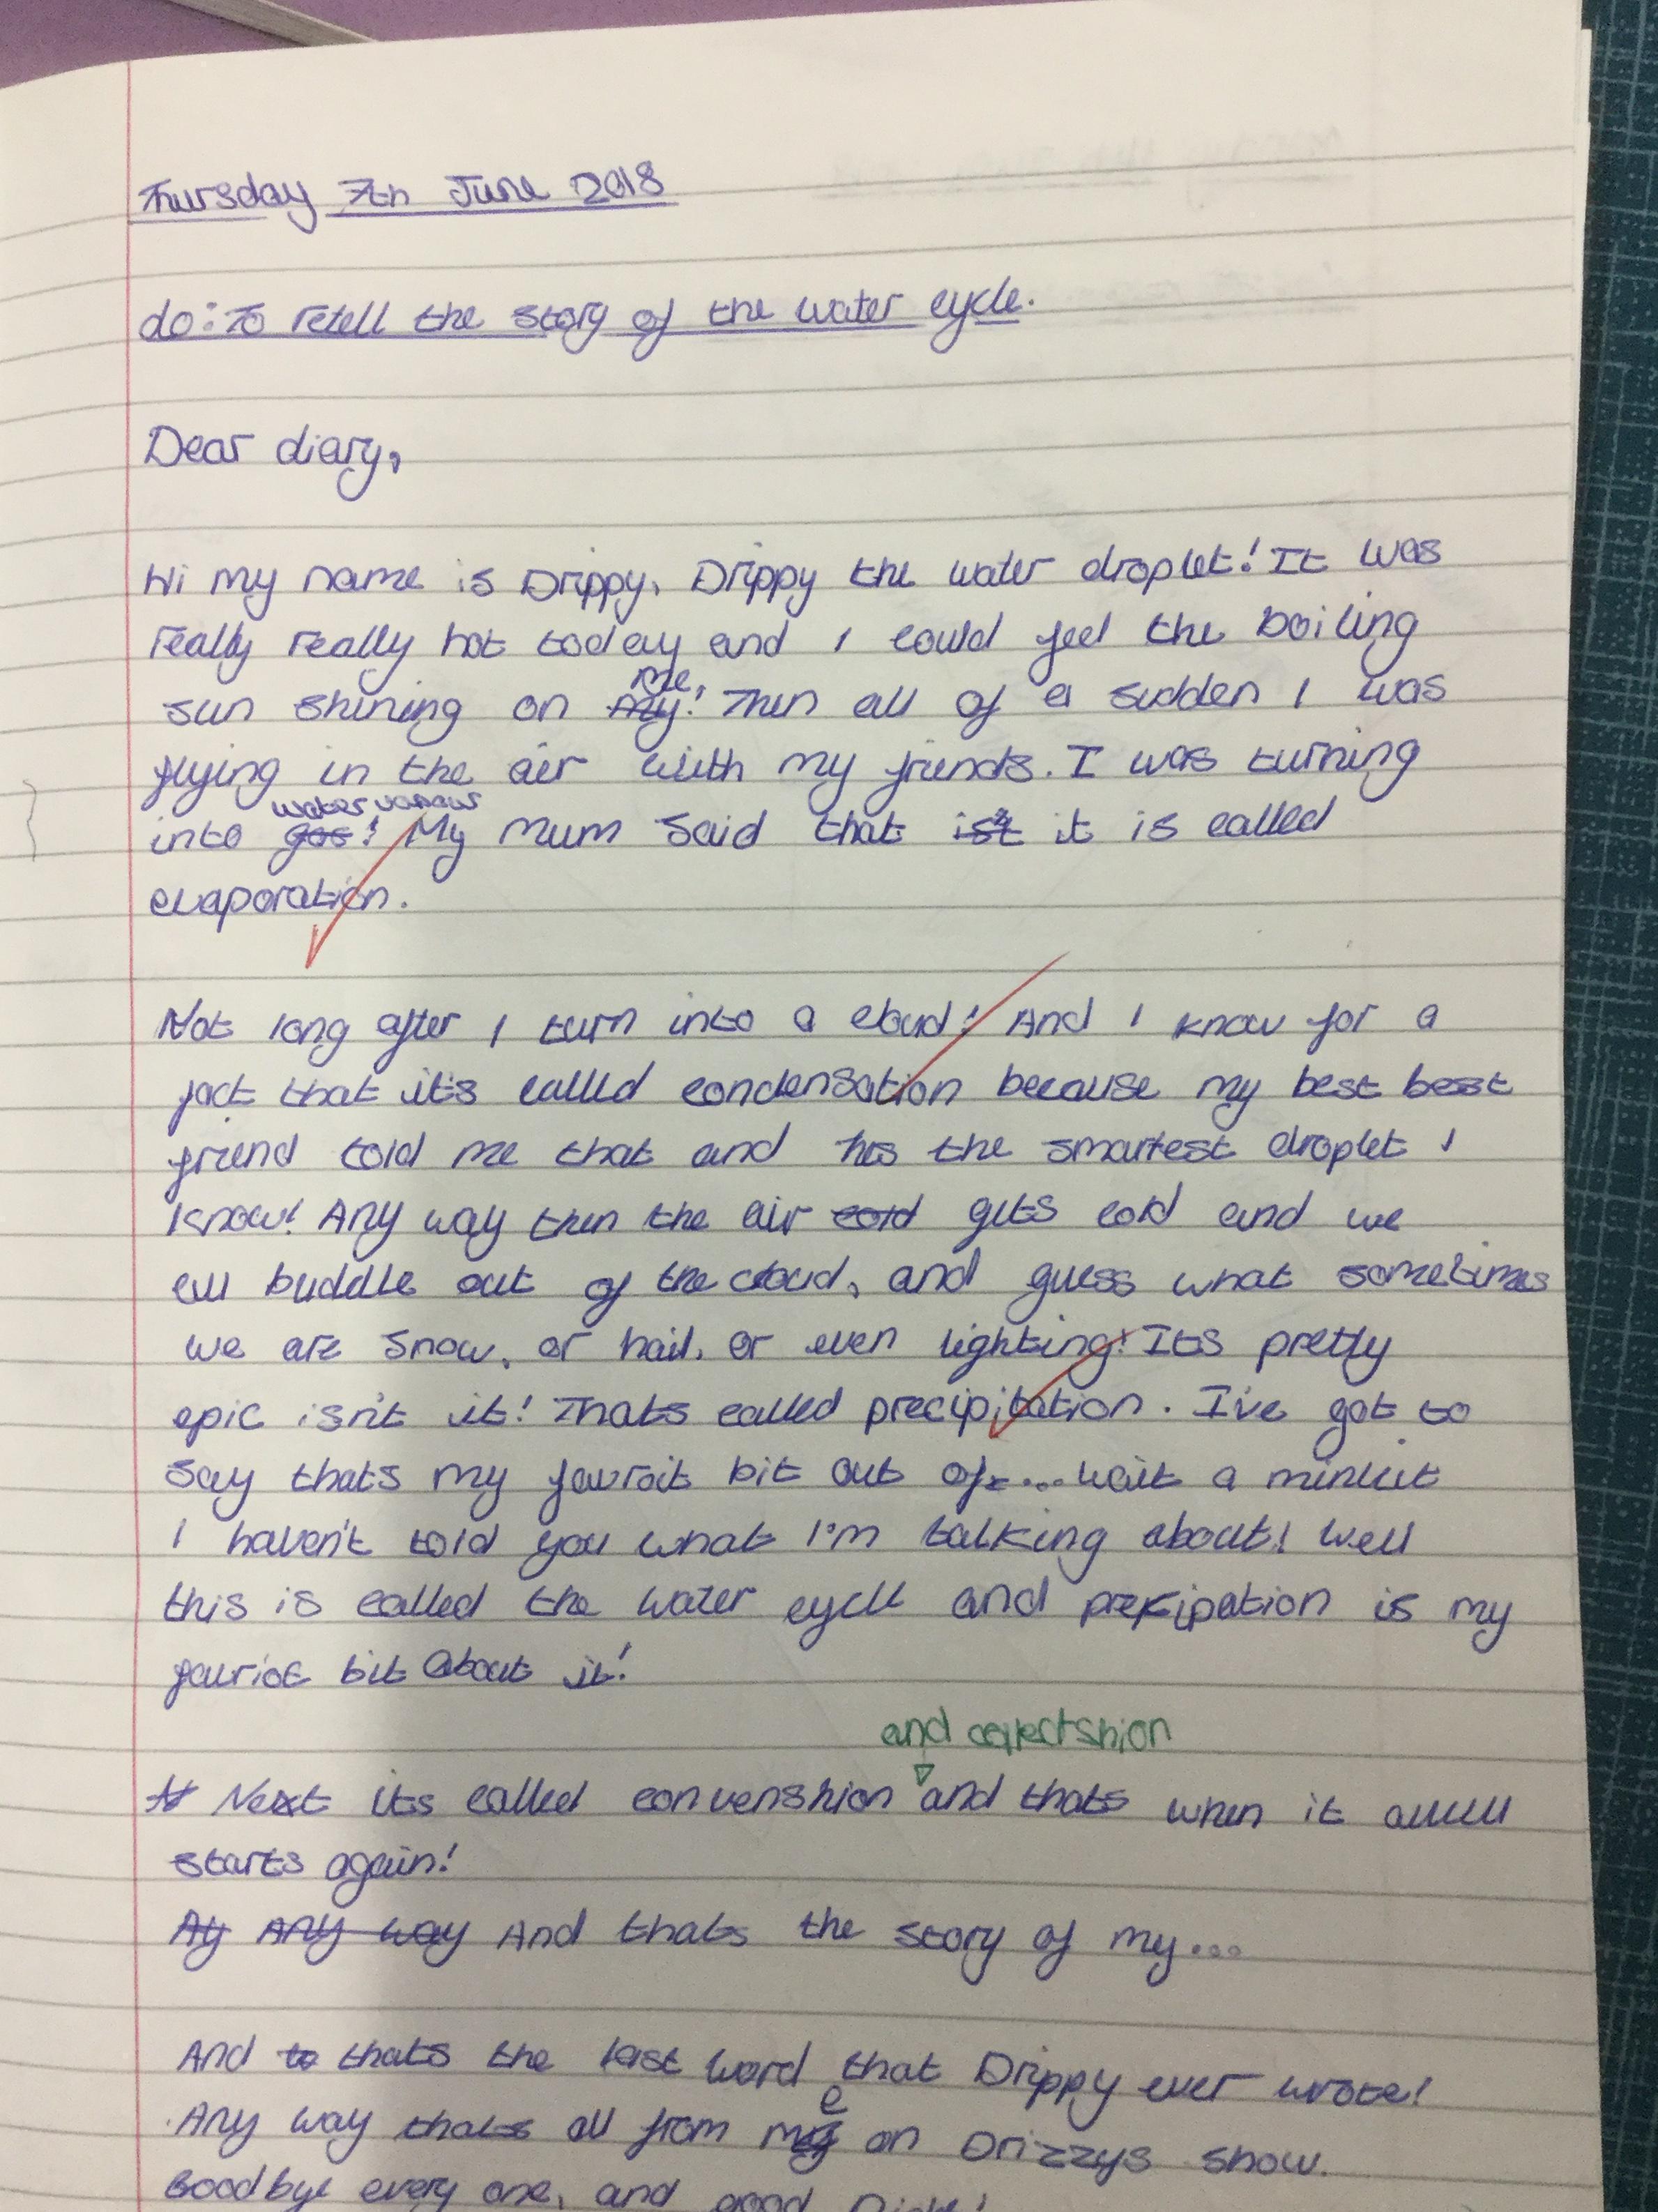 Thursday 7th June 2018
do: To retell the story of the water cycle.
Dear diary,
Hi my name is Drippy, Drippy the water droplet! It was
really really hot today and I could feel the boiling
me,
sun shining on My! Then all of a sudden I was
flying in the air with my friends. I was turning
water vapour
into gas! My mum said that ist it is called
evaporation.
Not long after I turn into a cloud! And I know for a
fact that it's called condensation because my best best
friend told me that and hes the smartest droplet I
know! Any way then the air cold gets cold and we
all buddle out of the cloud, and guess what sometimes
we are snow, or hail, or even lighting! Its pretty
epic isn't it! Thats called precipitation. I've got to
say thats my favroit bit out of... wait a minuit
I haven't told you what I'm talking about! Well
this is called the water cycle and precipation is my
favriot bit about it!
and collectshion
Next its called convenshion and thats when it allll
starts again!
Ay Any way And thats the story of my...
And to thats the last word that Drippy ever wrote!
e
Any way thats all from my on Drizzys show.
Goodbye every one, and good Night!